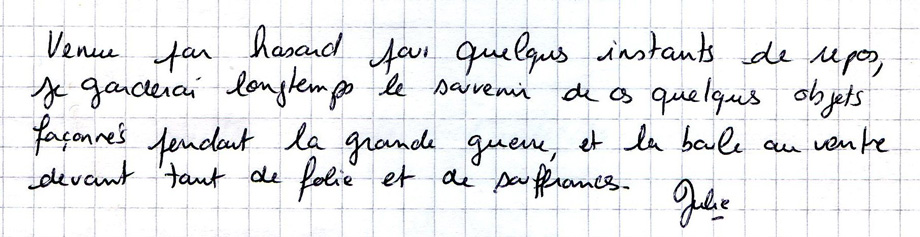 Venue par hasard pour quelques instants de repos,
je garderai longtemps le souvenir de ces quelques objets
façonnés pendant la grande guerre, et la boule au ventre
devant tant de folie et de souffrances.
Julie